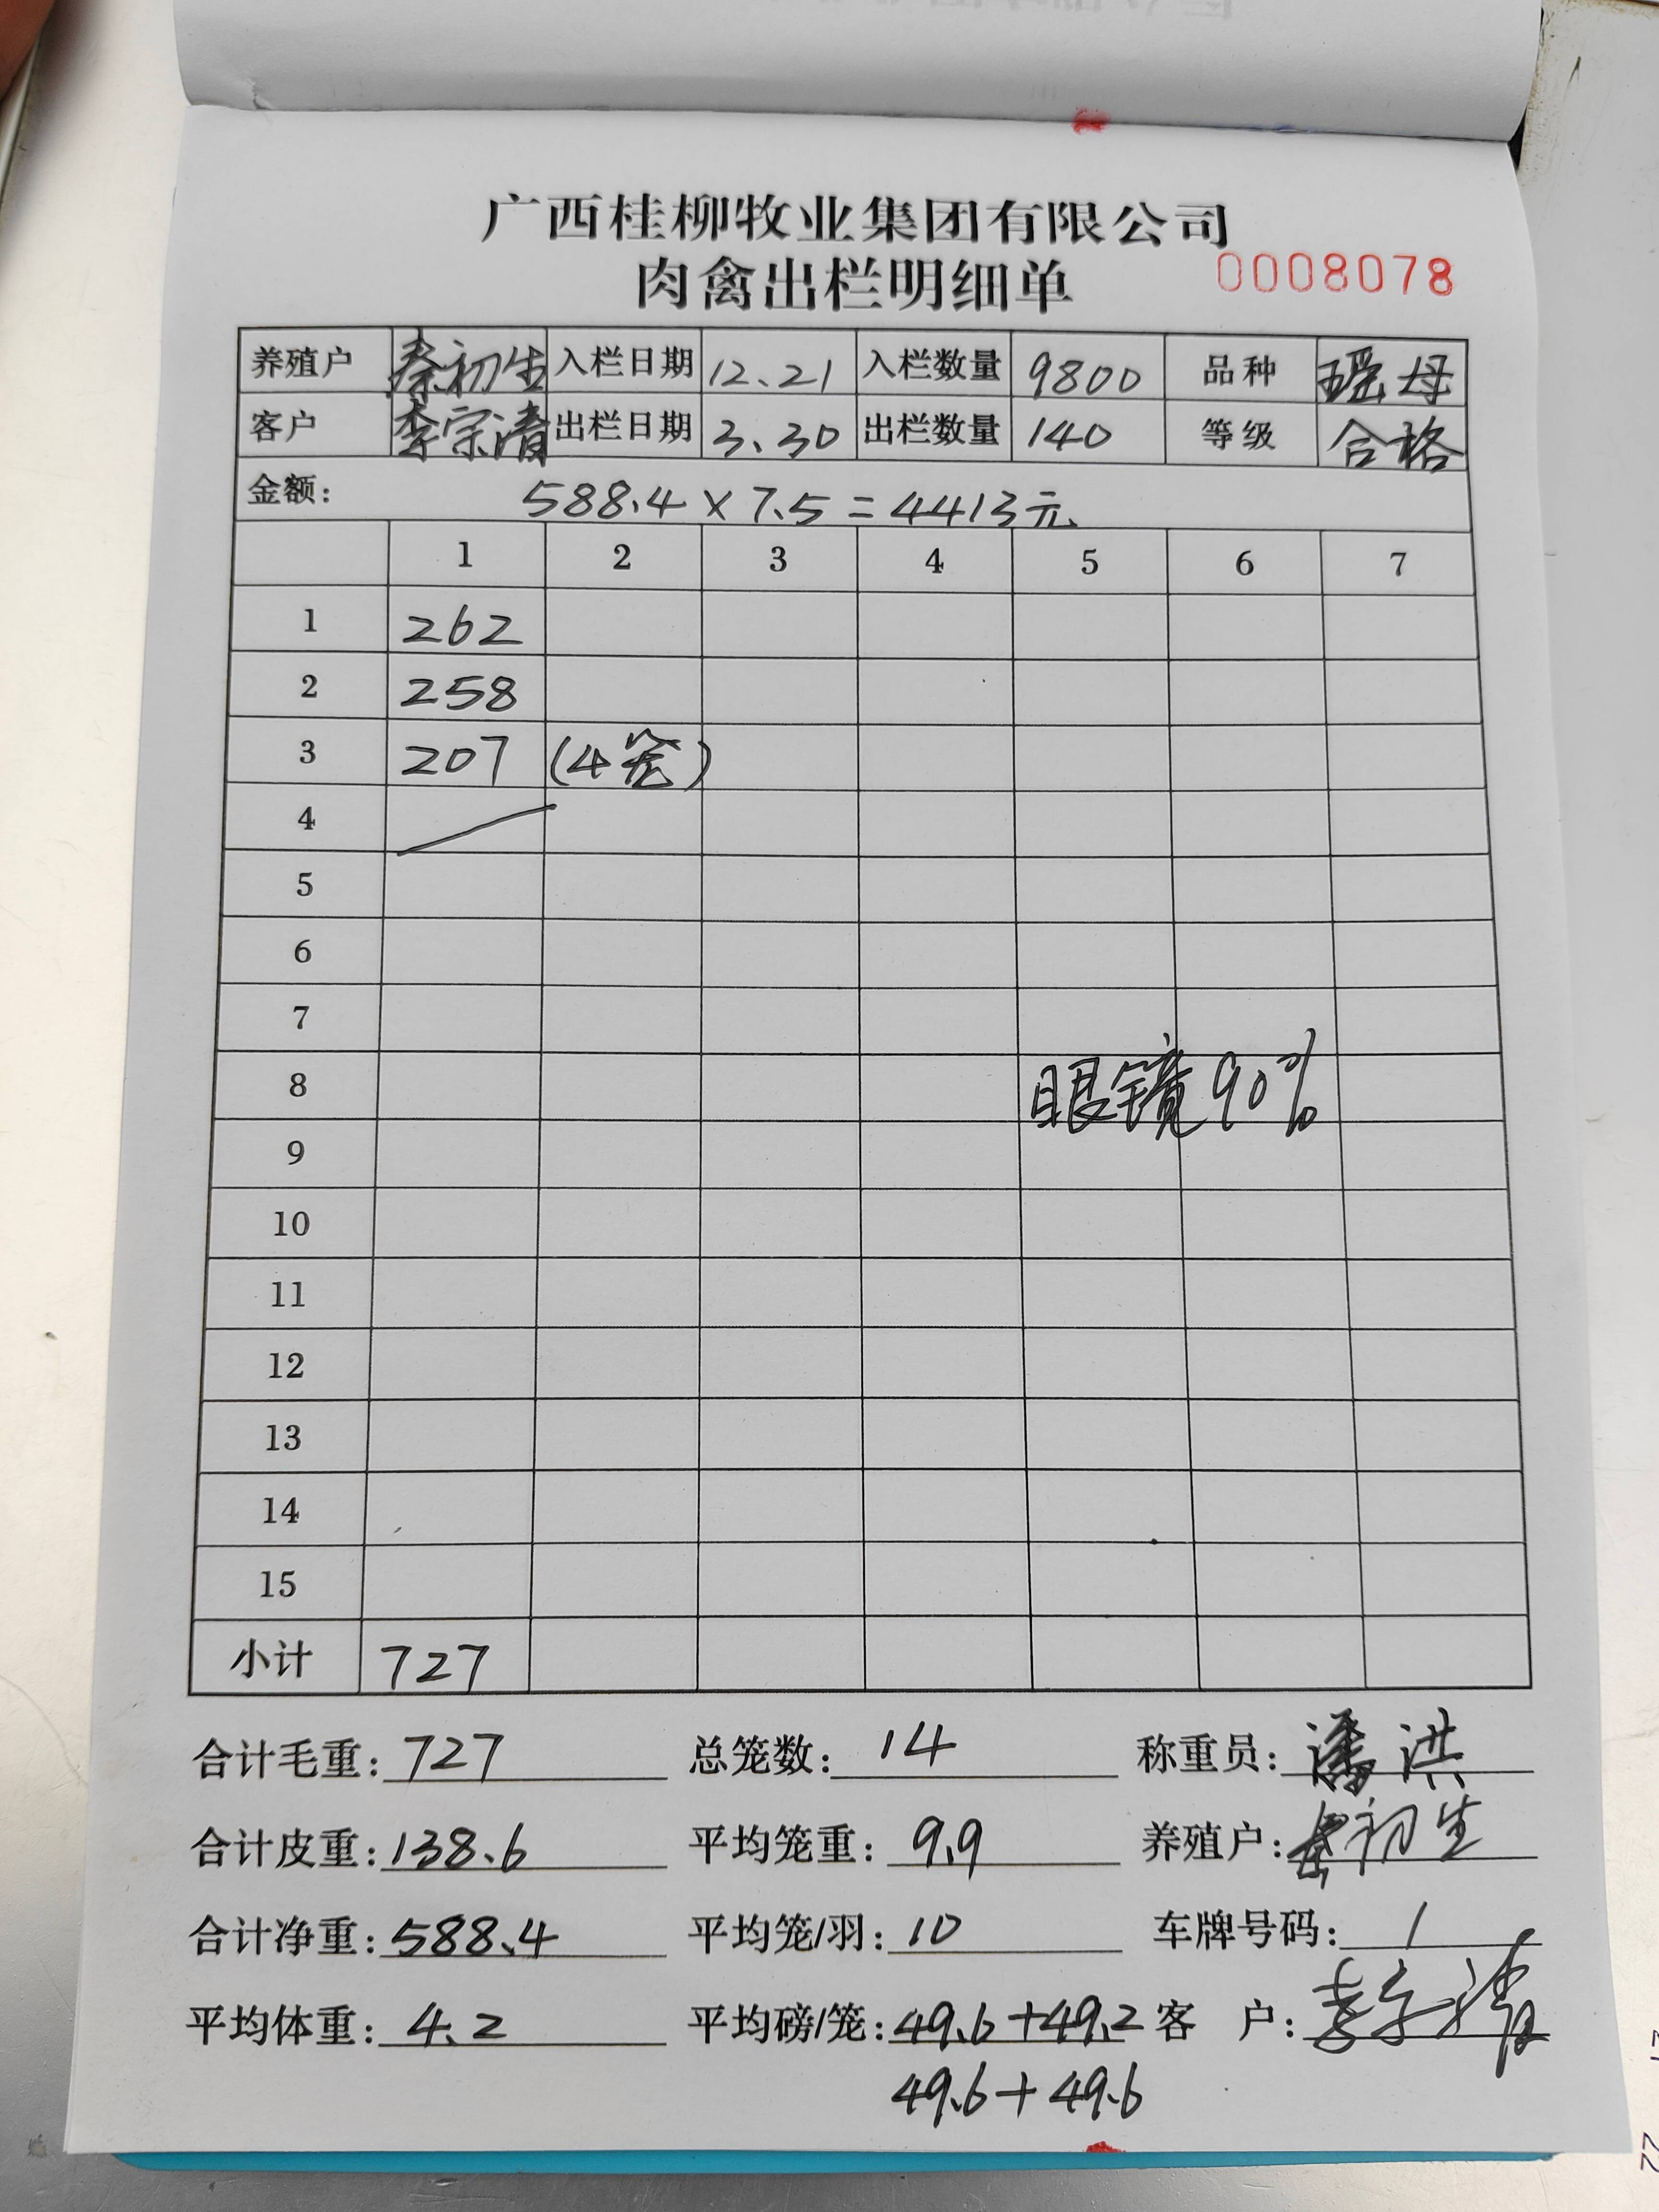 广西桂柳牧业集团有限公司
肉禽出栏明细单 0008078
养殖户 秦初生 入栏日期 12.21 入栏数量 9800 品种 瑶母
客户 李宗清 出栏日期 3.30 出栏数量 140 等级 合格
金额: 588.4×7.5=4413元
1 2 3 4 5 6 7
1 262
2 258
3 207 (4笼)
4
5
6
7
8 眼镜90%
9
10
11
12
13
14
15
小计 727
合计毛重: 727 总笼数: 14 称重员: 潘洪
合计皮重: 138.6 平均笼重: 9.9 养殖户: 秦初生
合计净重: 588.4 平均笼/羽: 10 车牌号码: /
平均体重: 4.2 平均磅/笼: 49.6+49.2 客 户: 李宗清
49.6+49.6
22